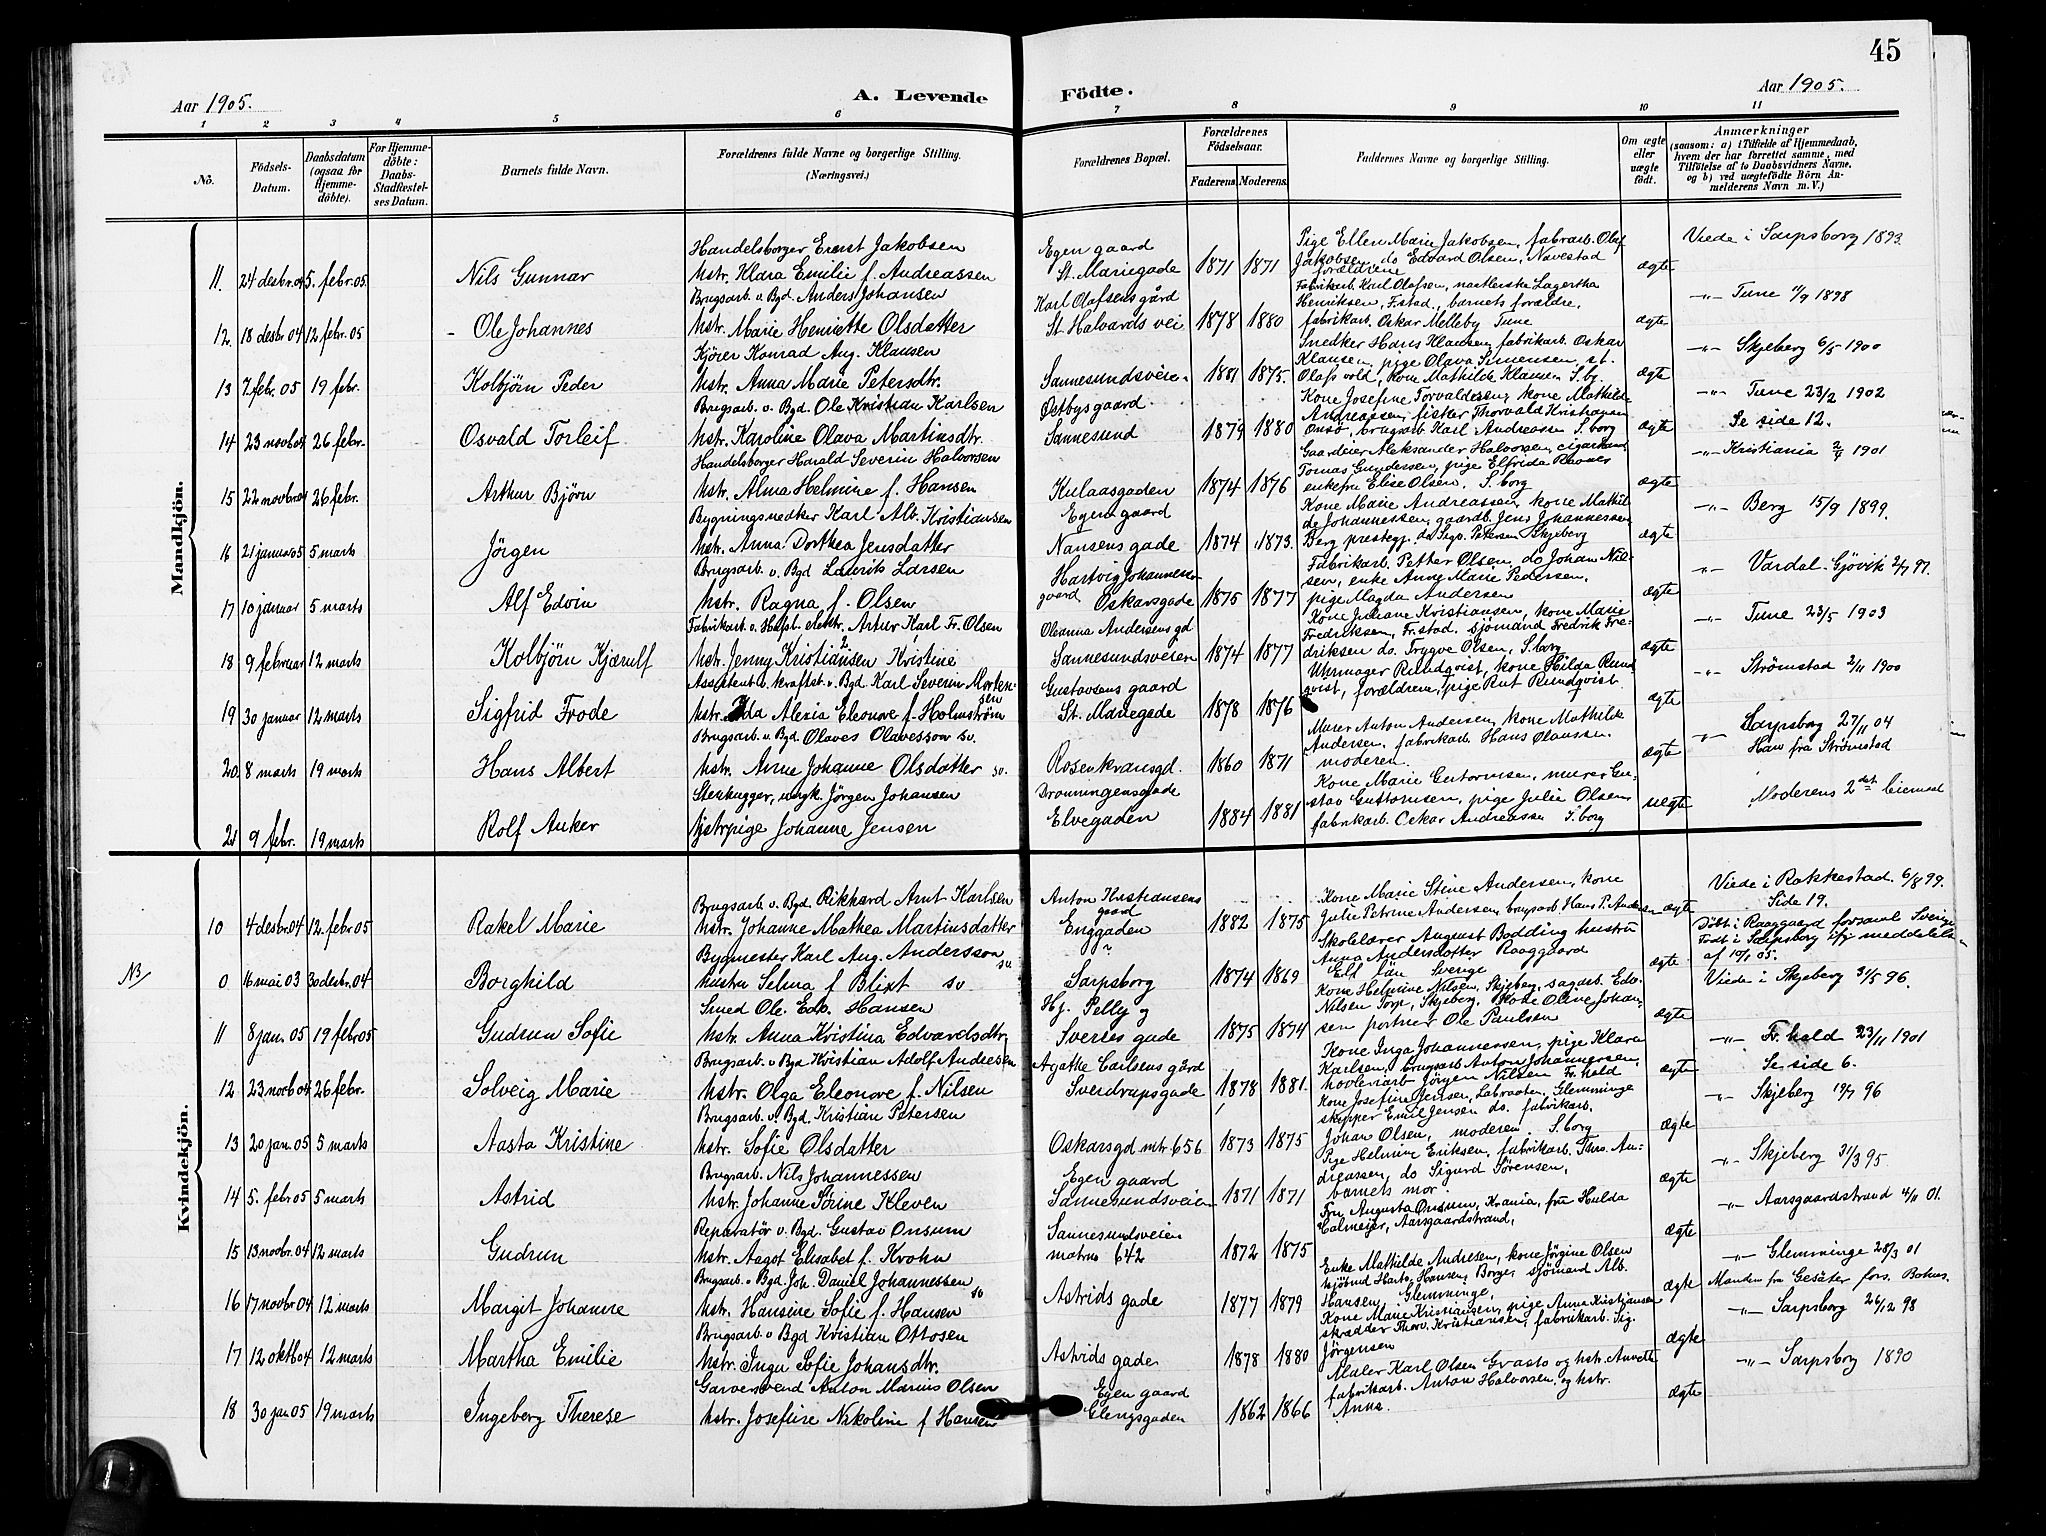 45
Aar 1905.
A. Levende Födte.
Aar 1905.
1 2 3 4 5 6 7 8 9 10 11
No.
Födsels-Datum.
Daabsdatum (ogsaa for Hjemmedöbte).
For Hjemmedöbte: Daabs-Stadfæstelses Datum.
Barnets fulde Navn.
Forældrenes fulde Navne og borgerlige Stilling. (Næringsvei.)
Forældrenes Bopæl.
Forældrenes Födselsaar.
Faderens. Moderens.
Faddernes Navne og borgerlige Stilling.
Om ægte eller uægte födt.
Anmærkninger (saasom: a) i Tilfælde af Hjemmedaab, hvem der har forrettet samme, med Tilföielse af to Daabsvidners Navne. og b) ved uægtefödte Börn Anmelderens Navn m. V.)
Mandkjön.
11. 24 desbr. 04 5. febr. 05. Nils Gunnar
Handelsborger Ernst Jakobsen
hstr. Klara Emilie f. Andreassen
Egen gaard
St. Mariegade 1871 1871
Pige Ellen Marie Jakobsen, fabrarb. Olaf
Jakobsen, do Edvard Olsen, Navestad
forældrene
ægte
Viede i Sarpsborg 1893.
12. 18 desbr 04 12 febr. 05 Ole Johannes
Brugsarb. v. Bgd. Anders Johansen
hstr. Marie Henriette Olsdatter
Karl Olafsens gård
St. Halvards vei 1878 1880
Fabrikarb. Karl Olafsen, Lagertha
Henriksen, F.stad, barnets forældre,
fabrikarb. Oskar Melleby Tune
ægte
-"- Tune 1898
13 7. febr. 05 19 febr. Kolbjörn Peder
Kjörer Konrad Aug. Klausen
hstr. Anna Marie Petersdtr.
Sannesundsveien 1881 1875.
Snedker Hans Klausen, fabrikarb. Oskar
Klausen, pige Olava Simensen, st.
Olafs vold, kone Mathilde Klausen S.bg.
ægte
-"- Skjeberg 6/5 1900
14 23 novb 04 26 febr. Osvald Torleif
Brugsarb. v. Bgd. Ole Kristian Karlsen
hstr. Karoline Olava Martinsdtr.
Östbys gaard
Sannesund 1879 1880
Kone Josefine Torvaldesen, kone Mathilde
Andreassen, fisker Thorvald Kristiansen
Onsö, brugsarb. Karl Andreassen S.borg
ægte
-"- Tune 23/2 1902
Se side 12.
15 22 novbr 04 26 febr. Arthur Björn
Handelsborger Harald Severin Halvorsen
hstr. Alma Helmine f. Hansen
Kulaasgaden 1874 1876
Gaardeier Aleksander Halvorsen,
Tomas Gundersen, pige Elfrida
enkefru Elise Olsen, S.borg
ægte
-"- Kristiania 1901
16 21 januar 05 5 marts Jörgen
Bygningsnedker Karl Alb. Kristiansen
hstr. Anna Dorthea Jensdatter
Egen gaard
Nansens gade 1874 1873.
Kone Marie Andreassen, kone Mathil
de Johannessen, gaardb. Jens Johannessen
Berg prestegj. do Sigv. Petersen Skjeberg
ægte
-"- Berg 15/9 1899.
17 10 januar 5 marts Alf Edvin
Brugsarb. v. Bgd Laurits Larsen
hstr. Ragna f. Olsen
Hartvig Johannesens
gaard Oskarsgade 1875 1877
Fabrikarb. Petter Olsen, do Johan Niel-
sen, enke Anne Marie Pedersen,
pige Magda Andersen
ægte
-"- Vardal-Gjövik 2/7 97.
18 9 februar 12 marts Kolbjörn Kjærulf
Fabrikarb. v. Hafsl. elektr. Artur Karl Fr. Olsen
hstr. Jenny Kristiansen Kristine
Oleanna Andersens gd
Sannesundsveien 1874 1877
Kone Juliane Kristiansen, kone Marie
Fredriksen, Fr.stad, sjömand Fredrik Fre-
driksen do. Trygve Olsen, S.borg
ægte
-"- Tune 23/5 1903
19 30 januar 12 marts Sigfrid Frode
Assistent v. kraftst. v. Bgd Karl Severin Morten-
sen
hstr. Ida Alexia Eleonore f. Holmström
Gustavsens gaard
St. Mariegade 1878 1876
Uhrmager Rundqvist, kone Hilda Rund
qvist, forældrene, pige Rut Rundqvist.
ægte
-"- Strömstad 2/11 1900
20. 8 marts 19 marts Hans Albert
Brugsarb. v. Bgd. Olaves Olavesson sv.
hstr. Anne Johanne Olsdatter sv.
Rosenkransgd. 1860 1871
Murer Anton Andersen, kone Mathilde
Andersen, fabrikarb. Hans Olaussen.
moderen.
ægte
-"- Sarpsborg 27/11 04
Han fra Strömstad
21 9 febr. 19 marts Rolf Anker
Stenhugger, ungk. Jörgen Johansen
Tjstrpige Johanne Jensen
Dronningensgade
Elvegaden 1884 1881
Kone Marie Guttormsen, murer Gu-
stav Guttormsen, pige Julie Olsen,
fabrikarb. Oskar Andreassen S.borg
uegte
Moderens 2det leiermaal
Kvindekjön.
10 4 desbr 04 12. febr 05 Rakel Marie
Brugsarb v. Bgd Rikhard Arnt Karlsen
hstr. Johanne Mathea Martinsdatter
Anton Kristiansens
gaard
Enggaden 1882 1875
Kone Marie Stine Andersen, kone
Julie Petrine Andersen, brugsarb Hans P. Andersen
ægte
Viede i Rakkestad 6/8 99.
Side 19.
NB
0 16 mai 03 30 desbr. 04 Borghild
Bygmester Karl Aug. Andersson sv
hustru Selma f Blixt sv
?
Sarpsborg 1874 1869
Skolelærer August Bodding hustru
Anna Andersdotter Raaggaard
Elfs län Sverige
ægte.
Döbt i Raaggaard forsaml Sverige
Födt i Sarpsborg ifg meddelelse
af 10/1 05.
11 8 jan. 05 19 febr 05 Gudrun Sofie
Smed Ole Edv. Hansen
hstr. Anna Kristina Edvardsdtr,
Hj. Pelly og
Sverres gade 1875 1874
Kone Helmine Nilsen, Skjeberg, sagarb. Edv.
Nilsen Torp, Skjeberg, kone Oline Johan-
sen portner Ole Paulsen
ægte
Viede i Skjeberg 31/5 96.
12 23 novb 04 26 febr. Solveig Marie
Brugsarb. v. Bgd Kristian Adolf Andresen
hstr. Olga Eleonore f. Nilsen
Agathe Carlsens gård
Sverdrupsgade 1878 1881.
Kone Inga Johannessen, pige Klara
Karlsen, brugsarb Anton Johannersen,
hövleriarb Jörgen Nilsen Fr.hald
ægte
-"- Fr. hald 23/11 1901
Se side 6.
13 20 jan. 05 5 marts Aasta Kristine
Brugsarb. v. Bgd. Kristian Petersen
hstr. Sofie Olsdatter
Oskarsgd mtr 656 1873 1875
Kone Josefine Jensen, Labraaten, Glemminge
skipper Emil Jensen do. fabrikarb.
Johan Olsen, moderen. S.borg
ægte
-"- Skjeberg 19/7 96
14 5. febr 05 5 marts Astrid
Brugsarb. Nils Johannessen
hstr. Johanne Sörine Kleven
Egen gaard
Sannesundsveien 1871 1871
Pige Helmine Eriksen, fabrikarb. Thrs. An-
dreassen, do Sigurd Sörensen,
barnets mor.
ægte
-"- Skjeberg 31/3 95
15 13 novbr. 04 12 marts Gudrun
Reparatör v. Bgd. Gustav Onsum
hstr. Aagot Elisabet f. Krohn
Sannesundsveien
matrno 642 1872 1875
Fru Augusta Onsum, Krania, fru Hulda
Calmeier, Aarsgaardstrand,
ægte
-"- Aarsgaardstrand 4/11 01.
16 17 novbr 04 12 marts Margit Johanne
Brugsarb. v Bgd. Joh. Daniel Johannessen sv
hstr. Hansine Sofie f. Hansen
Astrids gade 1877 1879
Enke Mathilde Andresen, kone Jörgine Olsen
Hansen, Borge, sjömand Alb.
Hansen, Glemminge,
ægte
-"- Glemminge 28/3 01
Manden fra Gesäter fors. Bohus.
17 12 oktb 04 12 marts Martha Emilie
Brugsarb. v Bgd Kristian Ottosen
hstr. Inga Sofie Johansdtr.
Astrids gade 1878 1880
Kone Marie Kristiansen, pige Anne Kristiansen
skrædder Thorv. Kristiansen, fabrikarb. Sig.
Jörgensen
ægte
-"- Sarpsborg 26/12 98
18 30 jan 05 19 marts Ingeborg Therese
Garversvend Anton Marius Olsen
hstr. Josefine Nikoline f Hansen
Egen gaard
Glengsgaden 1862 1866
Maler Karl Olsen Gvasto og hstr. Anette
fabrikarb. Anton Halvorsen, og hstr.
Anna.
ægte
-"- Sarpsborg 1890